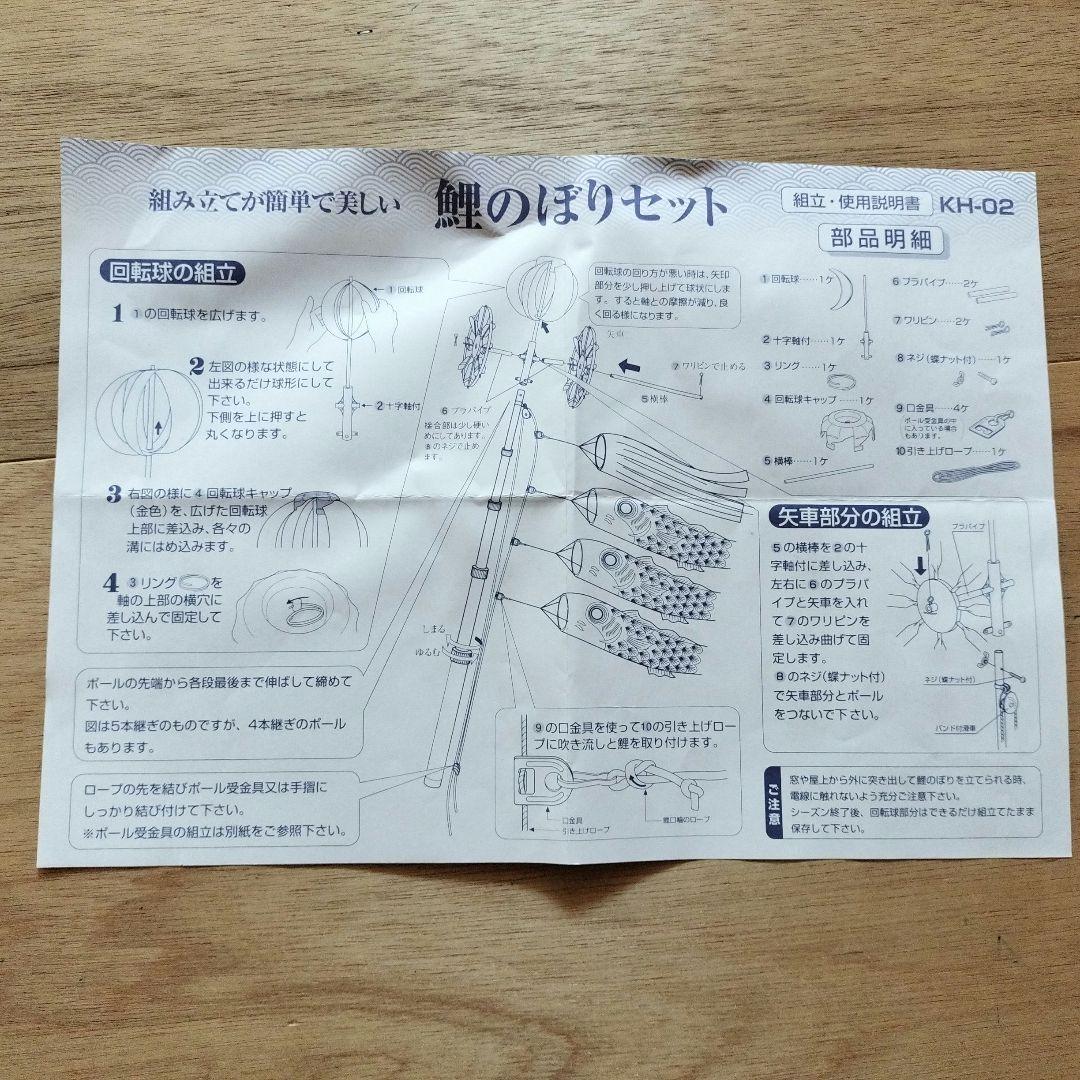 組み立てが簡単で美しい 鯉のぼりセット 組立・使用説明書 KH-02
回転球の組立
1 ①の回転球を広げます。
①回転球
2 左図の様な状態にして
出来るだけ球形にして
下さい。
下側を上に押すと
丸くなります。
②十字軸付
3 右図の様に④回転球キャップ
(金色)を、広げた回転球
上部に差込み、各々の
溝にはめ込みます。
4 ③リングを
軸の上部の横穴に
差し込んで固定して
下さい。
回転球の回り方が悪い時は、矢印
部分を少し押し上げて球状にしま
す。すると軸との摩擦が減り、良
く回る様になります。
矢車
⑦ワリピンで止める
⑤横棒
⑥プラパイプ
接合部は少し硬い
めにしてあります。
⑧のネジで止め
ます。
しまる
ゆるむ
ポールの先端から各段最後まで伸ばして締めて
下さい。
図は5本継ぎのものですが、4本継ぎのポール
もあります。
ロープの先を結びポール受金具又は手摺に
しっかり結び付けて下さい。
※ポール受金具の組立は別紙をご参照下さい。
⑨の口金具を使って⑩の引き上げロー
プに吹き流しと鯉を取り付けます。
口金具
引き上げロープ
鯉口輪のロープ
部品明細
①回転球……1ケ
②十字軸付……1ケ
③リング……1ケ
④回転球キャップ……1ケ
⑤横棒……1ケ
⑥プラパイプ……2ケ
⑦ワリピン……2ケ
⑧ネジ(蝶ナット付)……1ケ
⑨口金具……4ケ
ポール受金具の中
に入っている場合
もあります。
⑩引き上げロープ……1ケ
矢車部分の組立
⑤の横棒を②の十
字軸付に差し込み、
左右に⑥のプラパ
イプと矢車を入れ
て⑦のワリピンを
差し込み曲げて固
定します。
⑧のネジ(蝶ナット付)
で矢車部分とポール
をつないで下さい。
プラパイプ
ネジ(蝶ナット付)
バンド付滑車
ご注意
窓や屋上から外に突き出して鯉のぼりを立てられる時、
電線に触れないよう充分ご注意下さい。
シーズン終了後、回転球部分はできるだけ組立てたまま
保存して下さい。